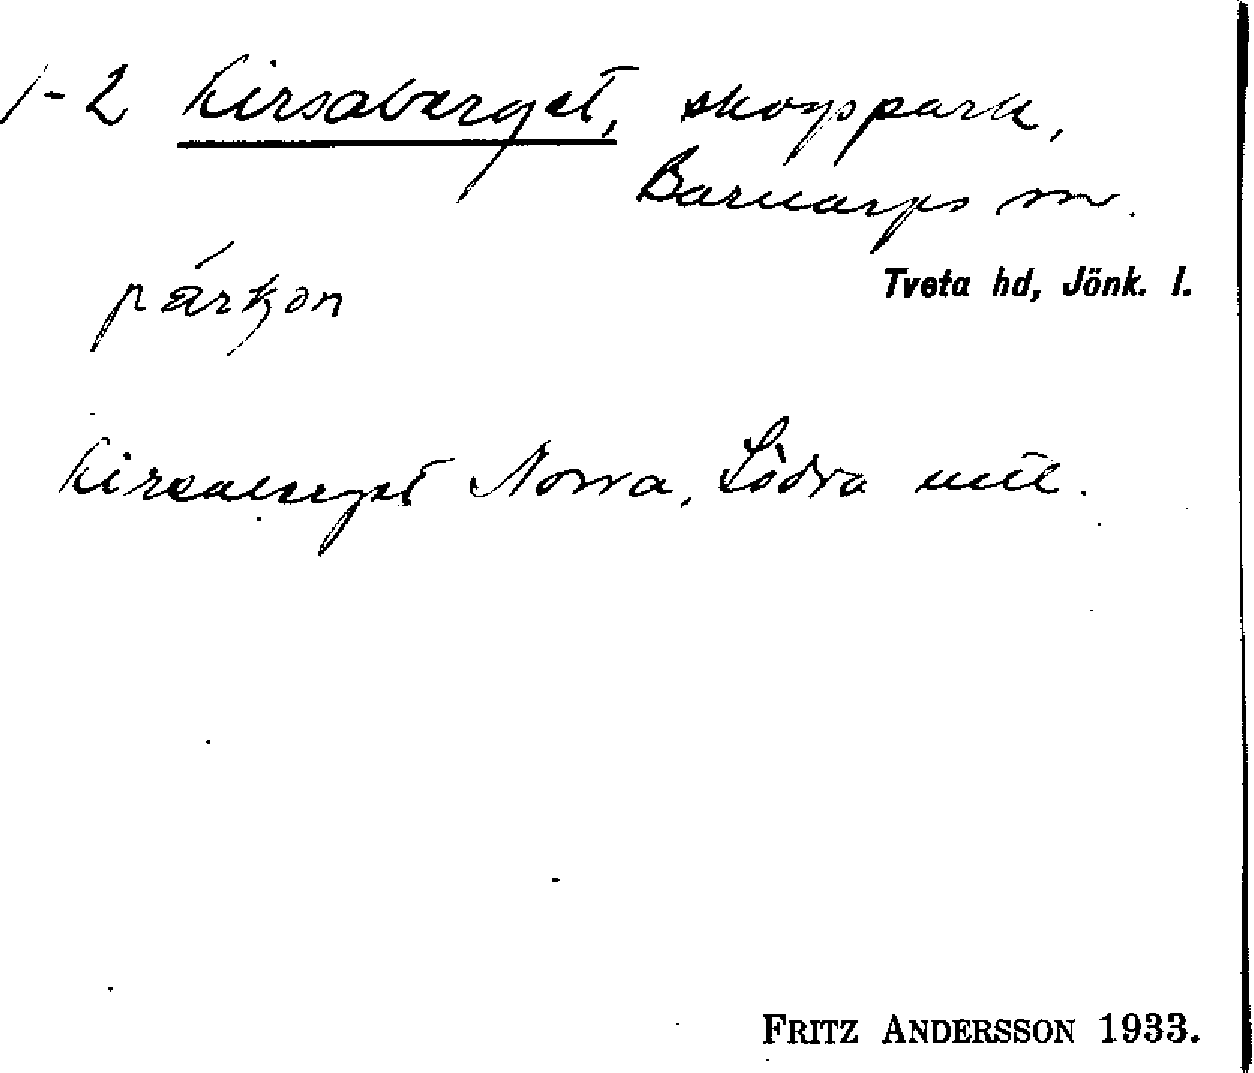 1-2 Kirsaberget, skogspark,
Barnarps sn.
Tveta hd, Jönk. l.
párkən
Kirsaberget Norra, Södra
FRITZ ANDERSSON 1933.